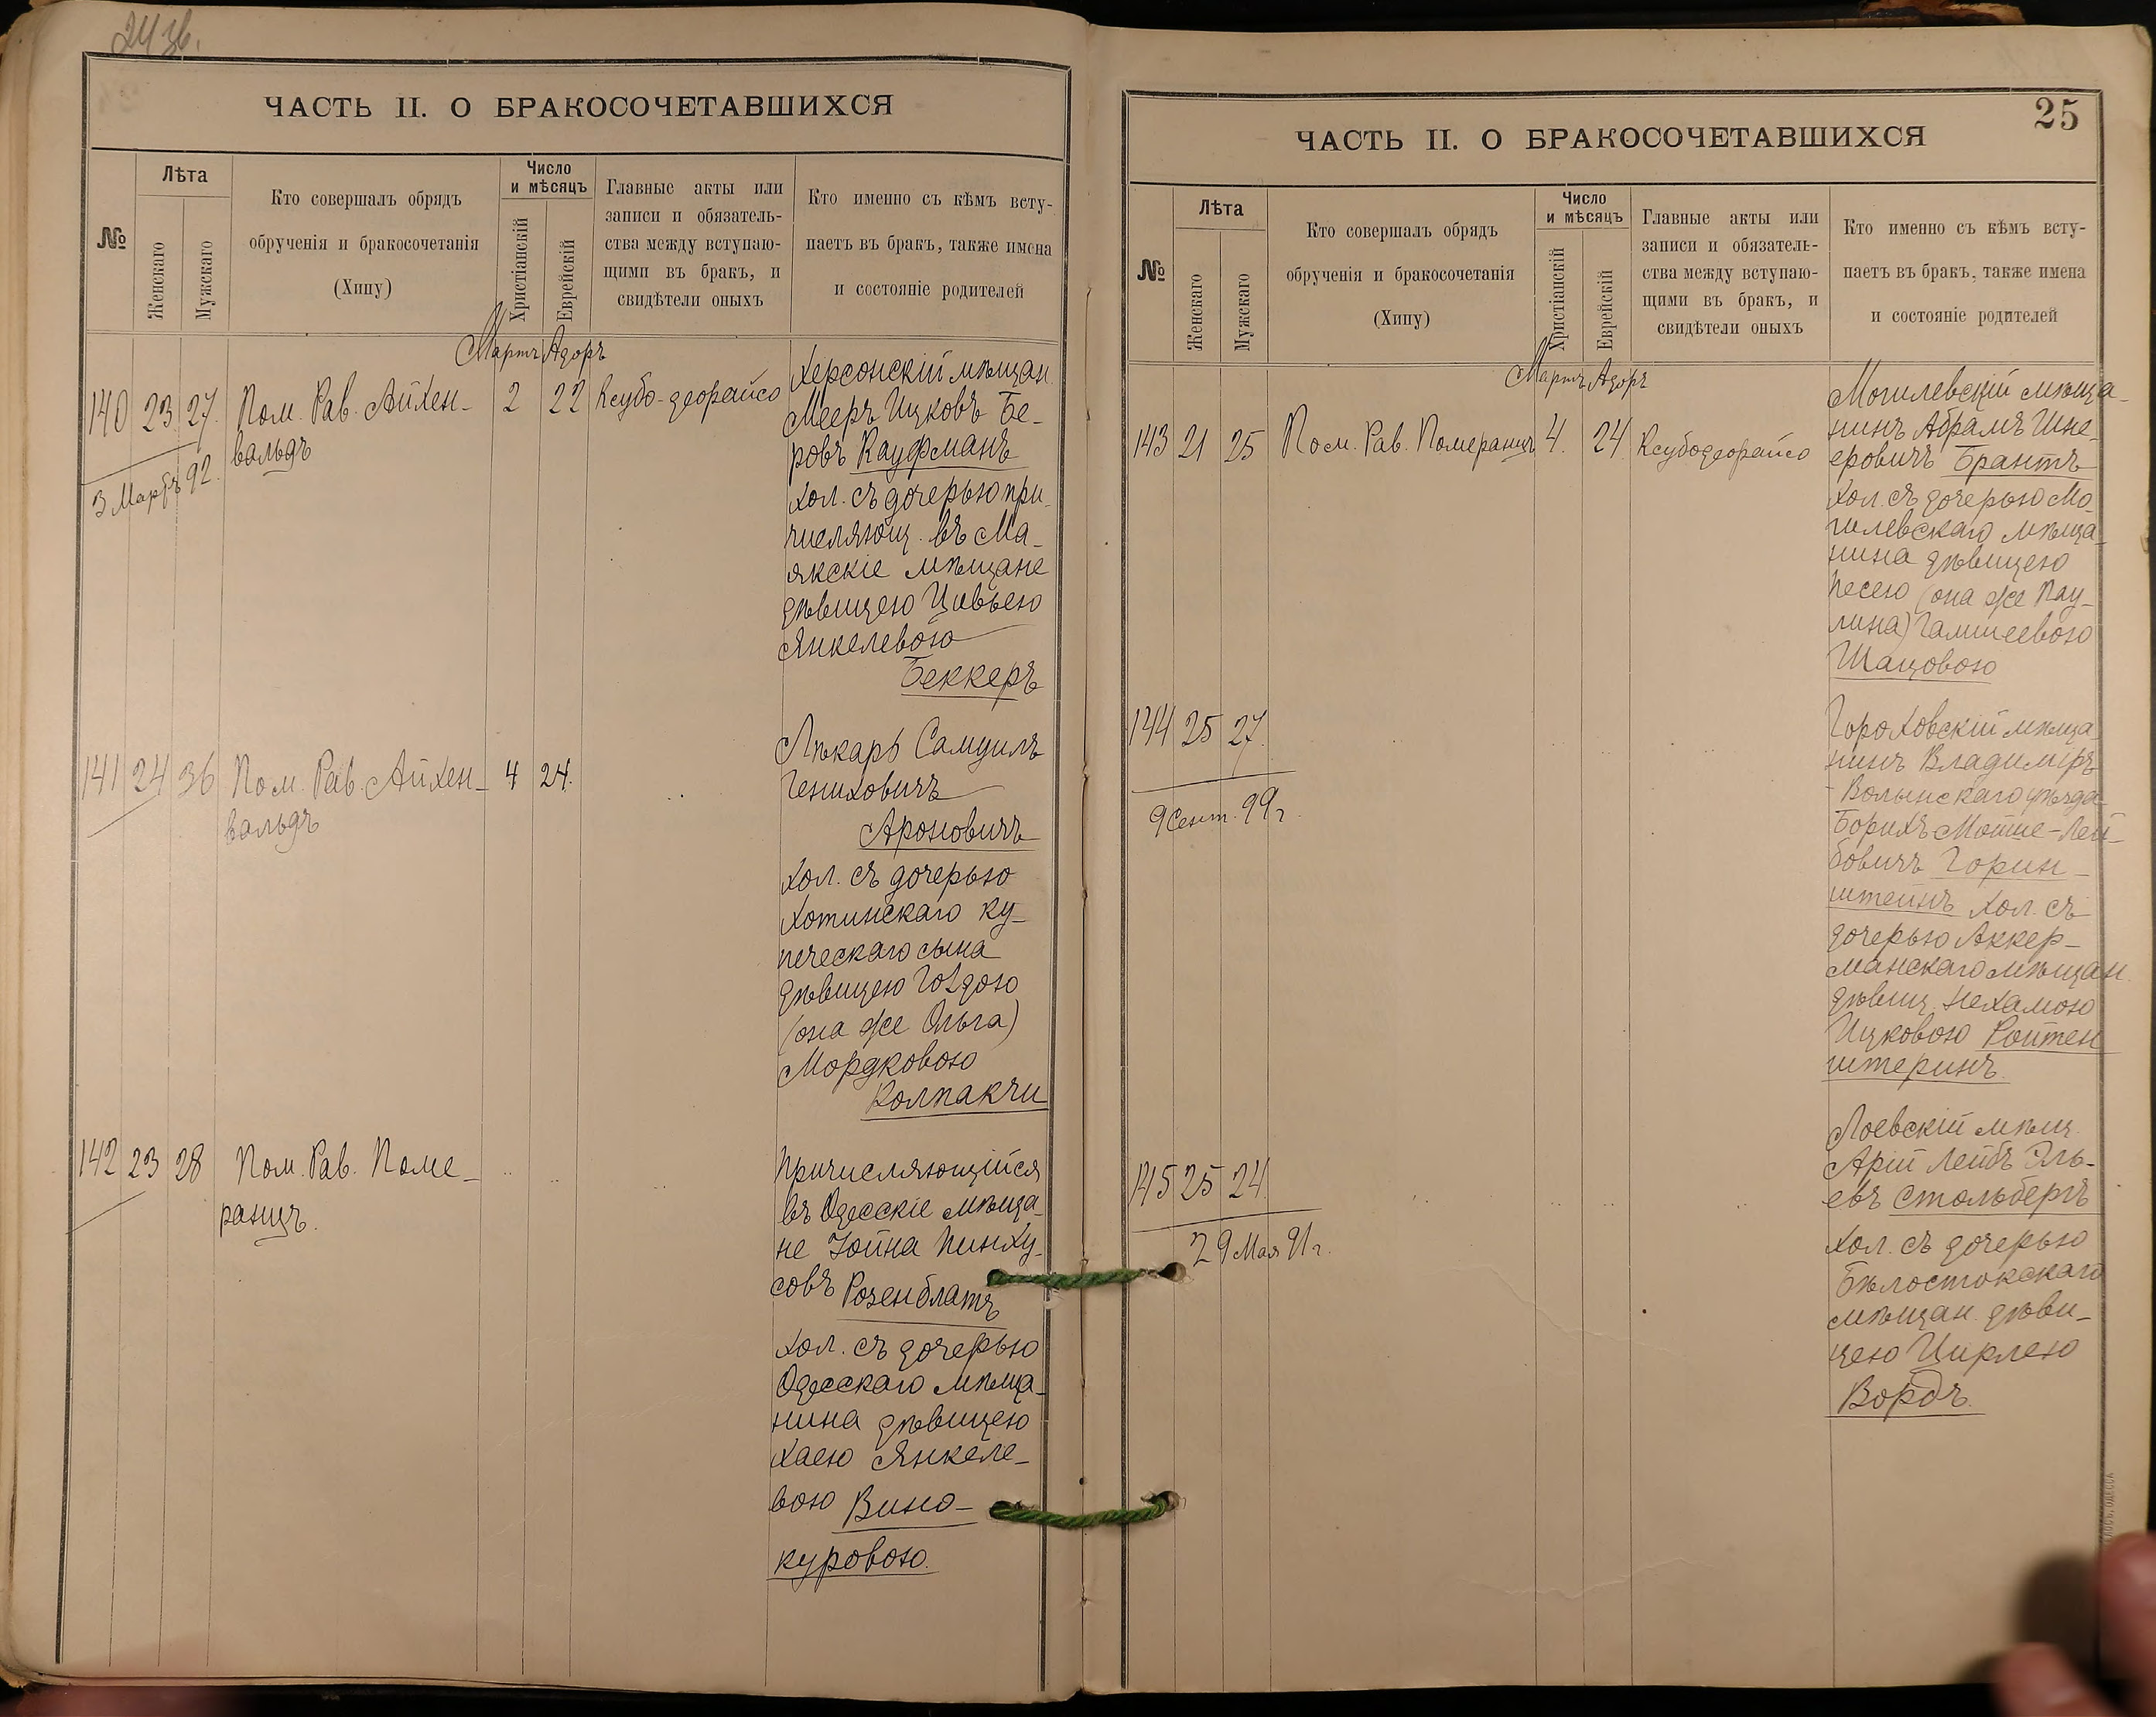 ЧАСТЬ II. О БРАКОСОЧЕТАВШИХСЯ
№
Лѣта
Женскаго
Мужскаго
Кто совершалъ обрядъ
обрученія и бракосочетанія
(Хипу)
Число
и мѣсяцъ
Христіанскій
Еврейскій
Главные акты или
записи и обязатель-
ства между вступаю-
щими въ бракъ, и
свидѣтели оныхъ
Кто именно съ кѣмъ всту-
паетъ въ бракъ, также имена
и состояніе родителей
Мартъ Адоръ
140 23 27 Пом. Рав. Айхен-
вальдъ
2 22 Ксубо-деорайсо
3 Мартъ 92.
Херсонскій мѣщан.
Мееръ Ицковъ Бе-
ровъ Кауфманъ
хол. съ дочерью при-
числяющ. въ Ма-
якскіе мѣщане
дѣвицею Цивьею
Янкелевою
Беккеръ
141 24 36 Пом. Рав. Айхен-
вальдъ
4 24. ..
Лѣкарь Самуилъ
Гениховичъ
Ароновичъ
хол. съ дочерью
Хотинскаго ку-
печескаго сына
дѣвицею Голдою
(она же Ольга)
Мордковою
Колпакчи
142 23 28 Пом. Рав. Поме-
ранцъ.
.. .. ..
Причисляющійся
въ Одесскіе мѣща-
не Іойна Пинху-
совъ Розенблатъ
хол. съ дочерью
Одесскаго мѣща-
нина дѣвицею
Хаею Янкеле-
вою Вино-
куровою.
25
ЧАСТЬ II. О БРАКОСОЧЕТАВШИХСЯ
№
Лѣта
Женскаго
Мужскаго
Кто совершалъ обрядъ
обрученія и бракосочетанія
(Хипу)
Число
и мѣсяцъ
Христіанскій
Еврейскій
Главные акты или
записи и обязатель-
ства между вступаю-
щими въ бракъ, и
свидѣтели оныхъ
Кто именно съ кѣмъ всту-
паетъ въ бракъ, также имена
и состояніе родителей
Мартъ Адоръ
143 21 25 Пом. Рав. Померанцъ 4. 24 Ксубодеорайсо
Могилевскій мѣща-
нинъ Абрамъ Шне-
еровичъ Брантъ
хол. съ дочерью Мо-
гилевскаго мѣща-
нина дѣвицею
Песею (она же Пау-
лина) Гамшеевою
Шацовою
144 25 27.
9 Сент. 99 г.
.. .. .. ..
Гороховскій мѣща-
нинъ Владиміръ
-Волынскаго уѣзда
Борихъ Мошке-Лей-
бовичъ Горин-
штейнъ хол. съ
дочерью Аккер-
манскаго мѣщан.
дѣвиц. Нехамою
Ицковою Ройтен
штернъ.
145 25 24.
29 Мая 91 г.
.. .. .. ..
Лоевскій мѣщ.
Арій Лейбъ Эль-
евъ Стольбергъ
хол. съ дочерью
Бѣлостокскаго
мѣщан. дѣви-
цею Цирлею
Вордъ.